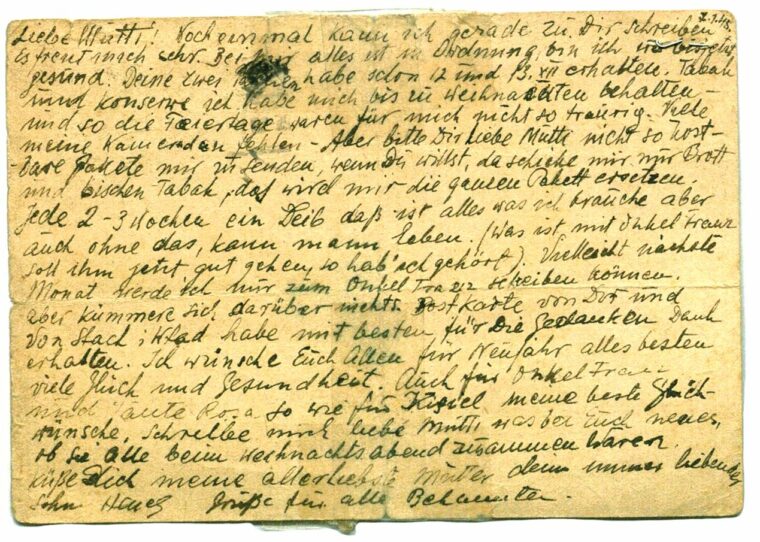 2.1.45.
Liebe Mutti! Noch einmal kann ich gerade zu Dir schreiben
Es freut mich sehr. Bei mir alles ist in Ordnung, bin ich
gesund. Deine zwei habe schon 12 und 13. XII erhalten. Tabak
und Konserwe ich habe mich bis zu weihnachten behalten –
und so die Feiertage waren für mich nicht so traurig. Viele
meine Kameraden fehlen – Aber bitte Dir liebe Mutti nicht so kost-
bare Pakete mir zu senden, wenn Du willst, da schicke mir nur Brott
und bischen Tabak, das wird mir die ganzen Pakett ersetzen.
Jede 2–3 wochen ein Leib daß ist alles was ich brauche aber
auch ohne das, kann mann leben. (was ist mit Onkel Franz
soll ihm jetzt gut gehen, so hab' ich gehört). Vielleicht nächste
Monat werde ich nur zum Onkel Franz schreiben können.
aber kümmere sich darüber nichts. Postkarte von Dir und
von Stach i Wład habe mit besten für Die Gedanken Dank
erhalten. Ich wünsche Euch Allen für Neujahr alles besten
viele Glück und Gesundheit. Auch für Onkel Franz
und Tante Rosa so wie für meine beste Glück-
wünsche, schreibe mich liebe Mutti was bei Euch neues,
ob Sie alle beim weihnachtsabend zusammen waren.
küße Dich meine allerliebste Mutter denn immer liebender
Sohn Grüße für alle Bekannten.